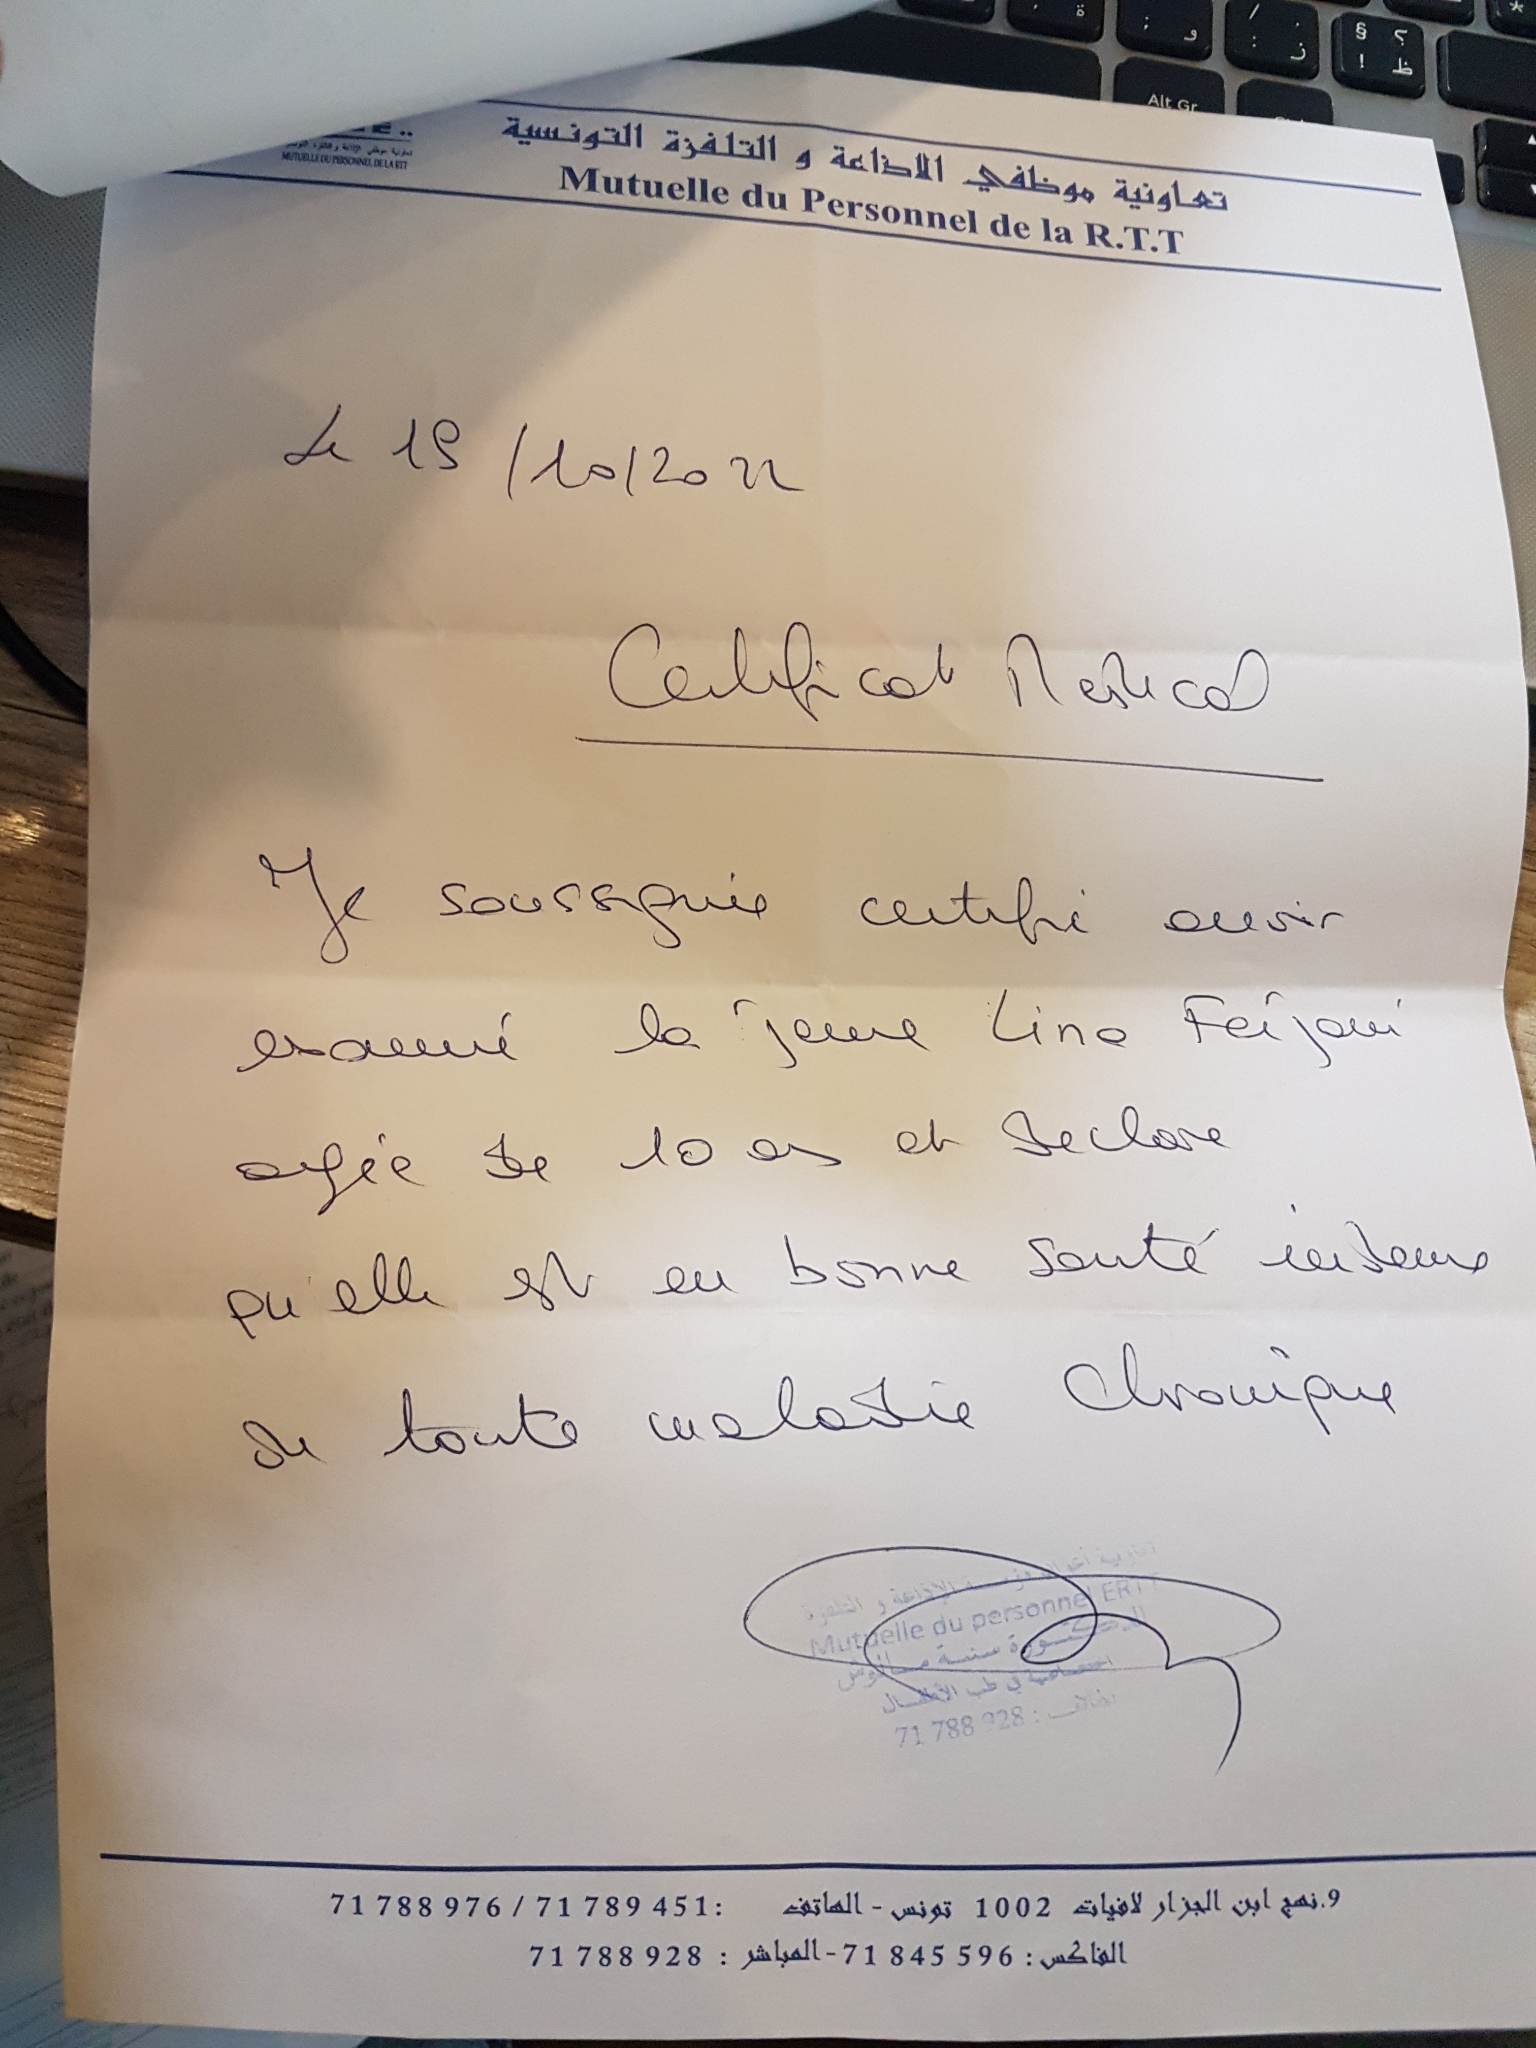 تعاونية موظفي الاذاعة و التلفزة التونسية
MUTUELLE DU PERSONNEL DE LA RTT
Mutuelle du Personnel de la R.T.T
Le 19/10/2022
Certificat Medical
Je soussignée certifie avoir
examiné la jeune Lina Feijani
agée de 10 ans et declare
qu'elle est en bonne santé indemne
de toute maladie chronique
Mutuelle du personnel ERTT
الدكتورة سنية
اختصاصية في طب الأطفال
الهاتف : 71 788 928
9.نهج ابن الجزار لافيات 1002 تونس - الهاتف :71 788 976 / 71 789 451
الفاكس : 71 845 596 - المباشر : 71 788 928
؟
§
ظ
!
/
.
:
ز
;
و
ة
*
Alt Gr